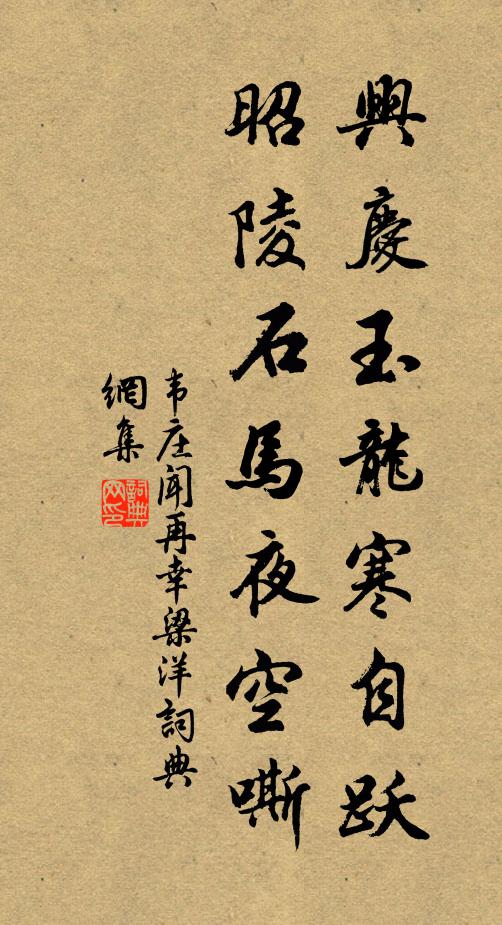 興慶玉龍寒自跃
昭陵石馬夜空嘶
韦庄聞再幸梁洋詞典
網集
詞典網印